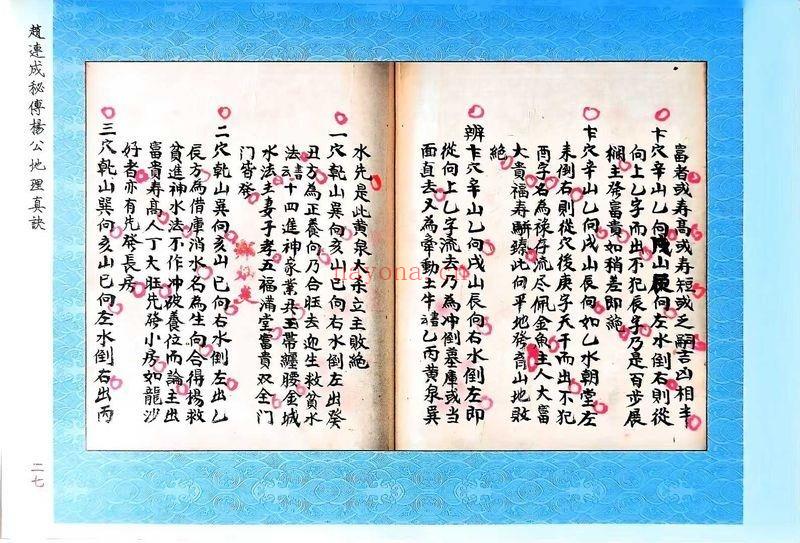 趙連成秘傳楊公地理真訣
富者或壽髙或壽短或乏嗣吉凶相半
卞穴辛山乙向戌山辰向左水倒右則從
向上乙字而出不犯辰字乃是百步展
欄主發富貴如稍差即絕
卞穴辛山乙向戌山辰向如乙水朝堂左
來倒右則從穴後庚子天干而出不犯
酉字名為禄存流尽佩金魚主人大富
大貴福寿駢臻此向平地發旺山地敗
絕
辨卞穴辛山乙向戌山辰向右水倒左即
從向上乙字流去乃為冲倒墓庫或當
面直去又為牽動土牛諸乙丙黃泉巽
水先是此黃泉大杀立主敗絕
一穴乾山巽向亥山巳向右水倒左出癸
丑方為正養向乃合旺去迎生救貧水
法諸十四進神家業兴玉帶纏腰金城
水法主妻子孝五福滿堂富貴双全門
門皆發
二穴乾山巽向亥山巳向右水倒左出乙
辰方為借庫消水名為生向合得楊救
貧進神水法不作冲破養位而論主出
富貴寿髙人丁大旺先發小房如龍沙
好者亦有先發長房
三穴乾山巽向亥山巳向左水倒右出丙
二七
nayona.cn